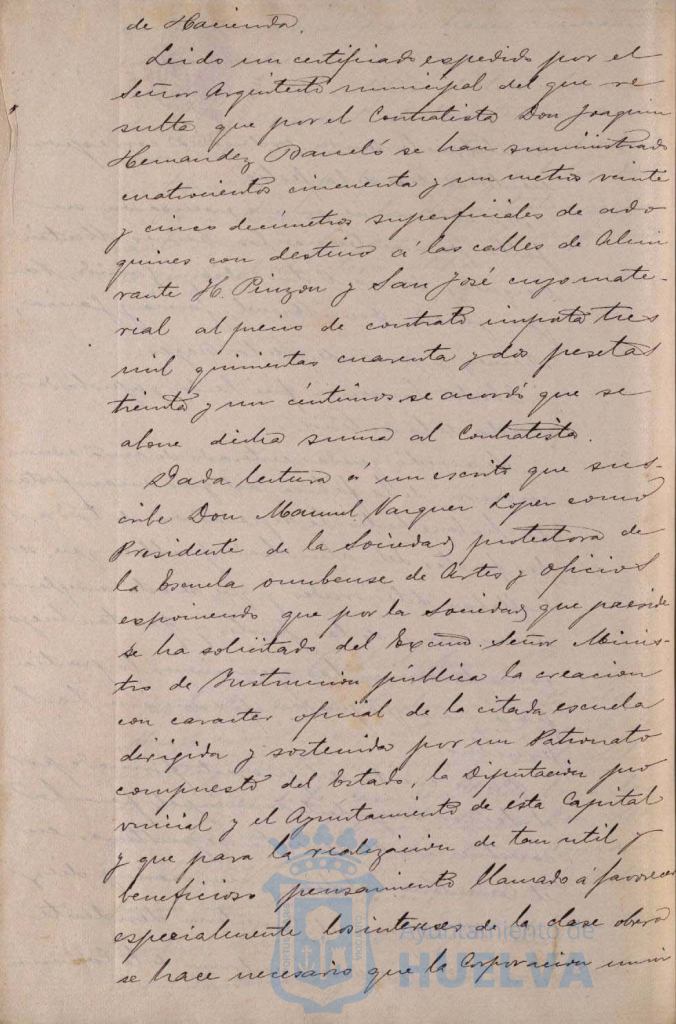 de Hacienda.
Leido un certificado expedido por el
Señor Arquitecto municipal del que re
sulta que por el Contratista Don Joaquin
Hernandez Barceló se han suministrado
cuatrocientos cincuenta y un metros veinte
y cinco decimetros superficiales de ado
quines con destino á las calles de Almi
rante H. Pinzon y San José cuyo mate-
rial al precio de contrato importa tres
mil quinientas cuarenta y dos pesetas
treinta y un céntimos se acordó que se
abone dicha suma al Contratista.
Dada lectura á un escrito que sus-
cribe Don Manuel Vazquez Lopez como
Presidente de la Sociedad protectora de
la Escuela onubense de Artes y oficios
exponiendo que por la Sociedad que preside
se ha solicitado del Excmo. Señor Minis-
tro de Instruccion pública la creacion
con caracter oficial de la citada escuela
dirigida y sostenida por un Patronato
compuesto del Estado, la Diputación pro
vincial y el Ayuntamiento de ésta Capital
y que para la realización de tan util y
beneficioso pensamiento llamado á favorecer
especialmente los intereses de la clase obrera
se hace necesario que la Corporacion muni
Ayuntamiento de
HUELVA